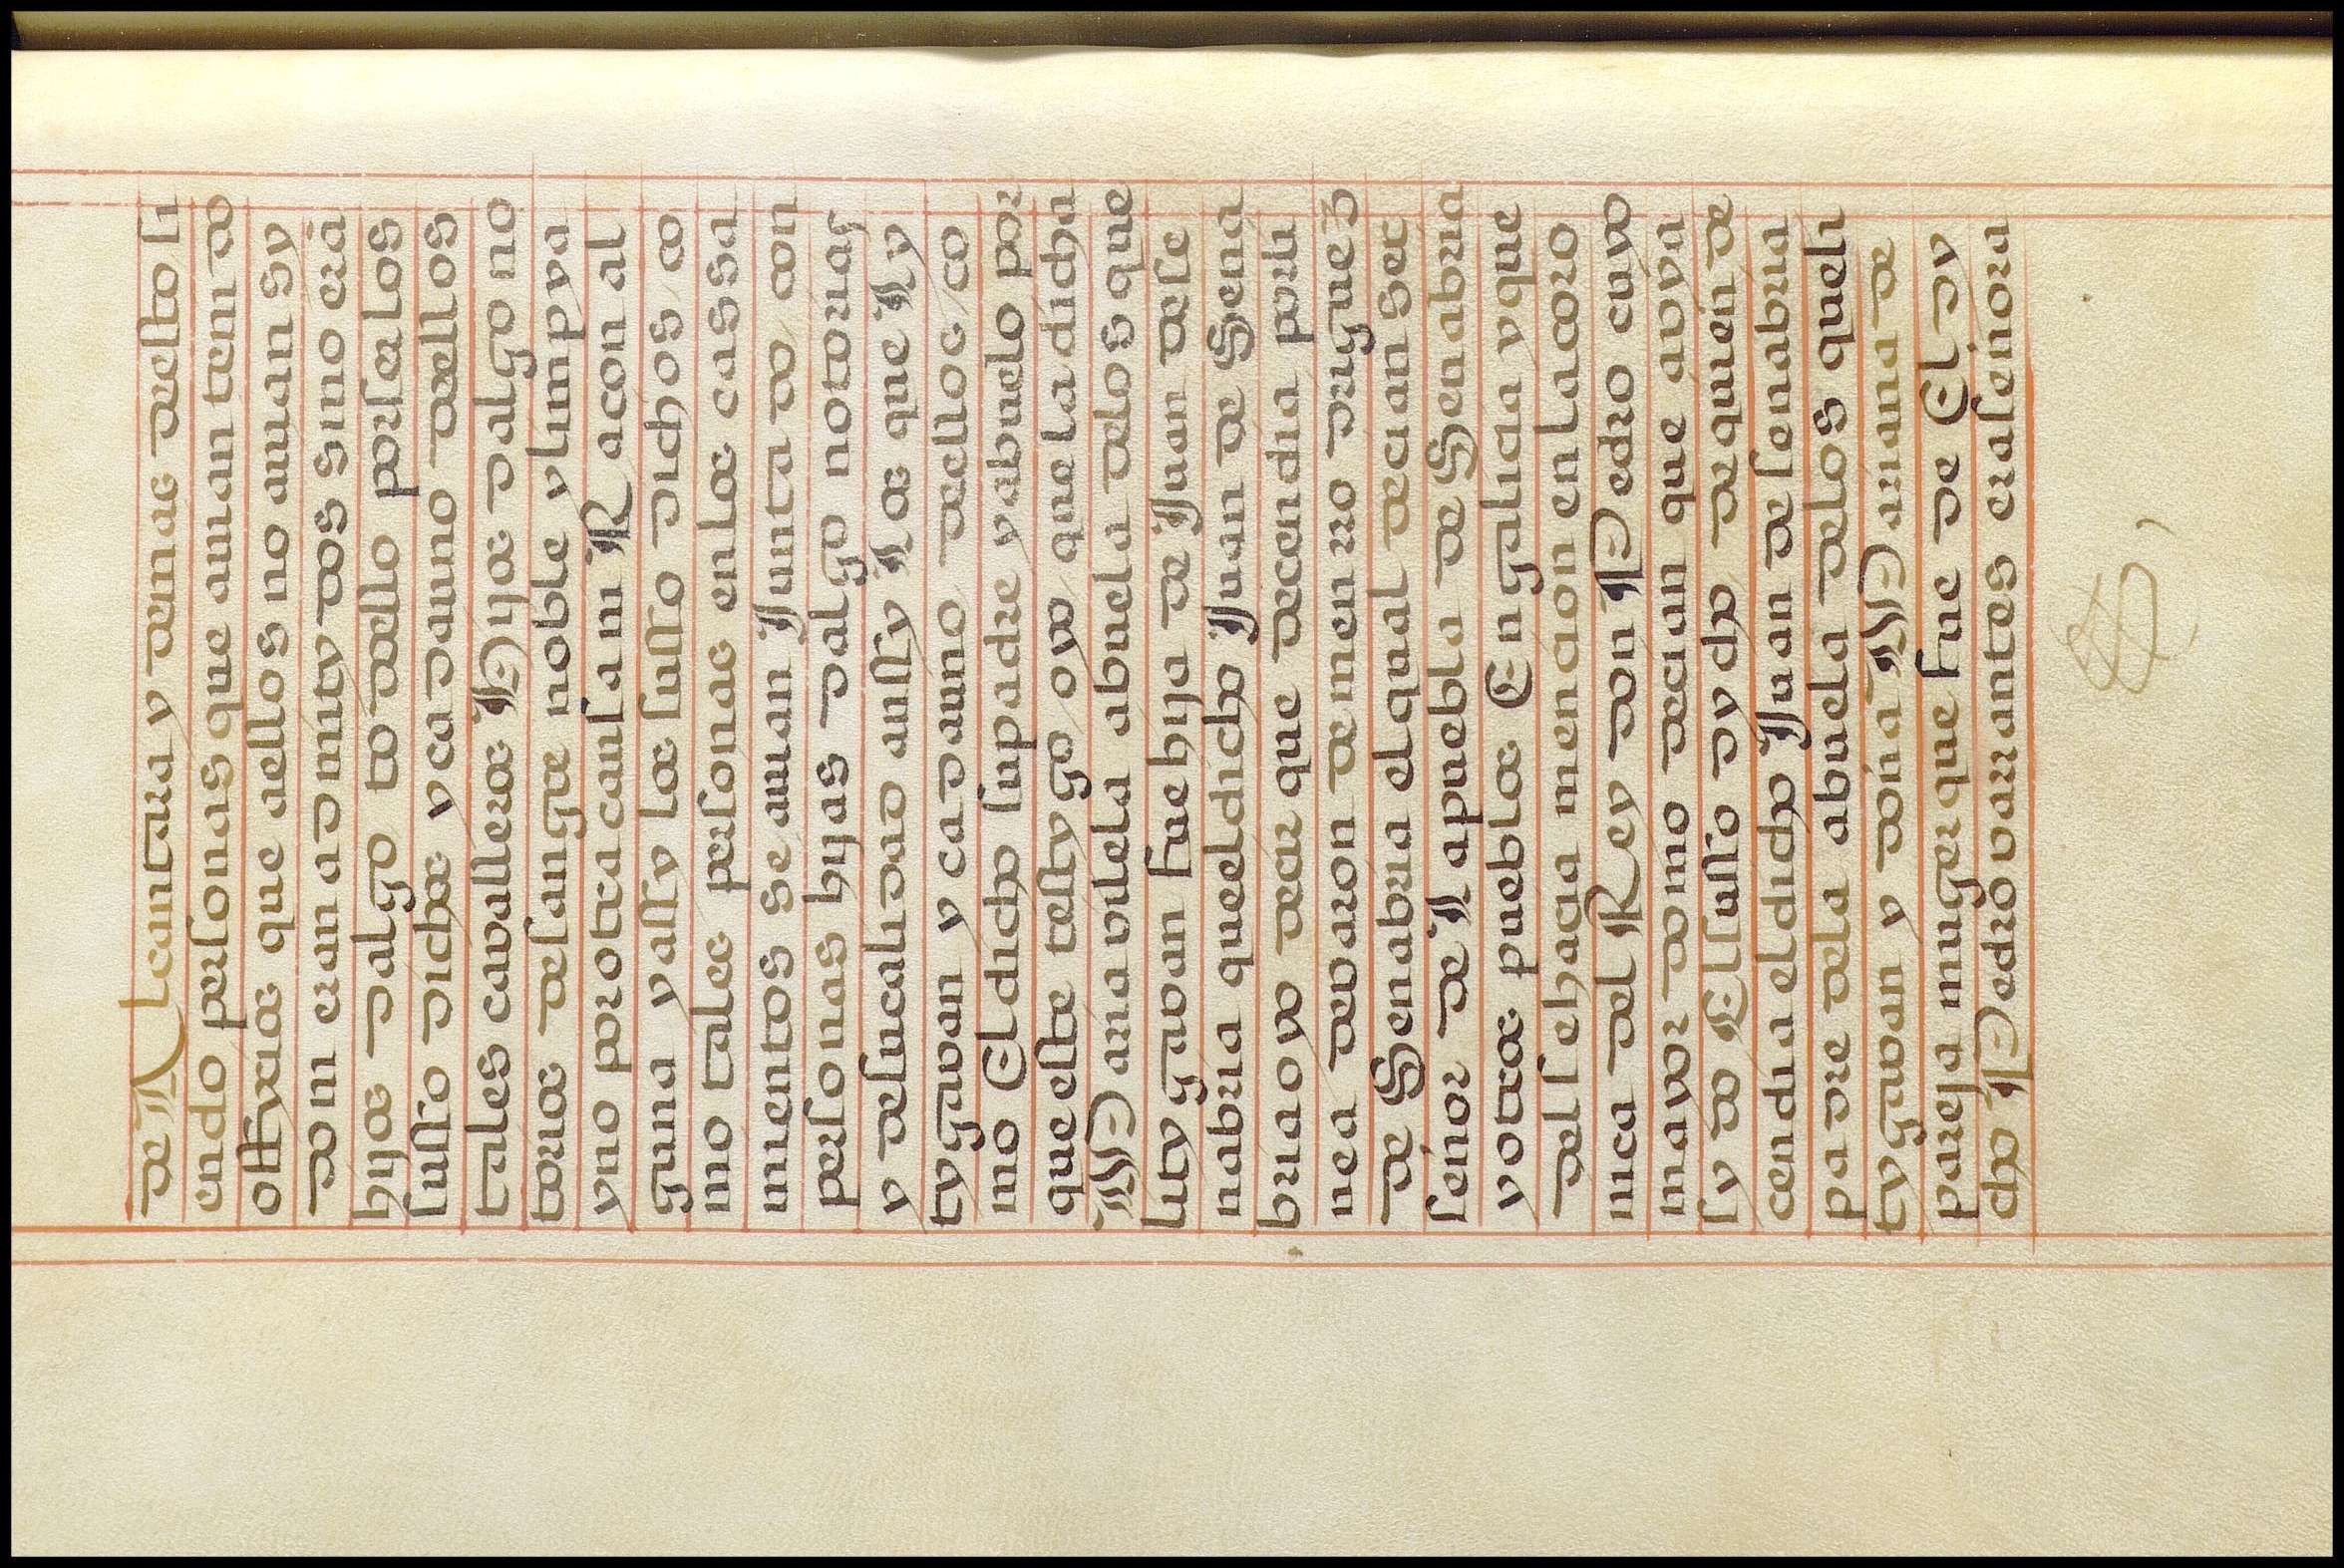 de Alcantara y demas desto si
endo personas que auian teni do
offixios que aellos no auian sy
do ni eran ad mity dos sino erā
hijos dalgo to dello por ser los
susso dichos y ca da uno dellos
tales cavalleros Hijos dalgo no
torios de sangre noble y limpya
y no por otra causa ni Racon al
guna y assy los susso dichos co
mo tales personas en los cassa
mientos se auian Junta do con
personas hijas dalgo notorias
y de su calidad aussy Los que Ly
tygavan y cada uno dellos co
mo El dicho su padre y abuelo por
que este testygo oyo que la dicha
Maria vilela abuela delos que
lity gavan fue hija de Juan dese
nabria que el dicho Juan de Sena
bria oyo decir que decendia por li
nea de varon de men rro driguez
de Senabria el qual decian ser
señor de La puebla de Senabria
y otros pueblos En galicia y que
del se hacia mencion en la coro
nica del Rey don Pedro cuyo
mayor domo decian que avya
sy do El susso dy cho de quien de
cendia el dicho Juan de senabria
padre dela abuela delos que li
tygavan y doña Mariana de
pareja muger que fue de El dy
cho Pedro varrantes era señora